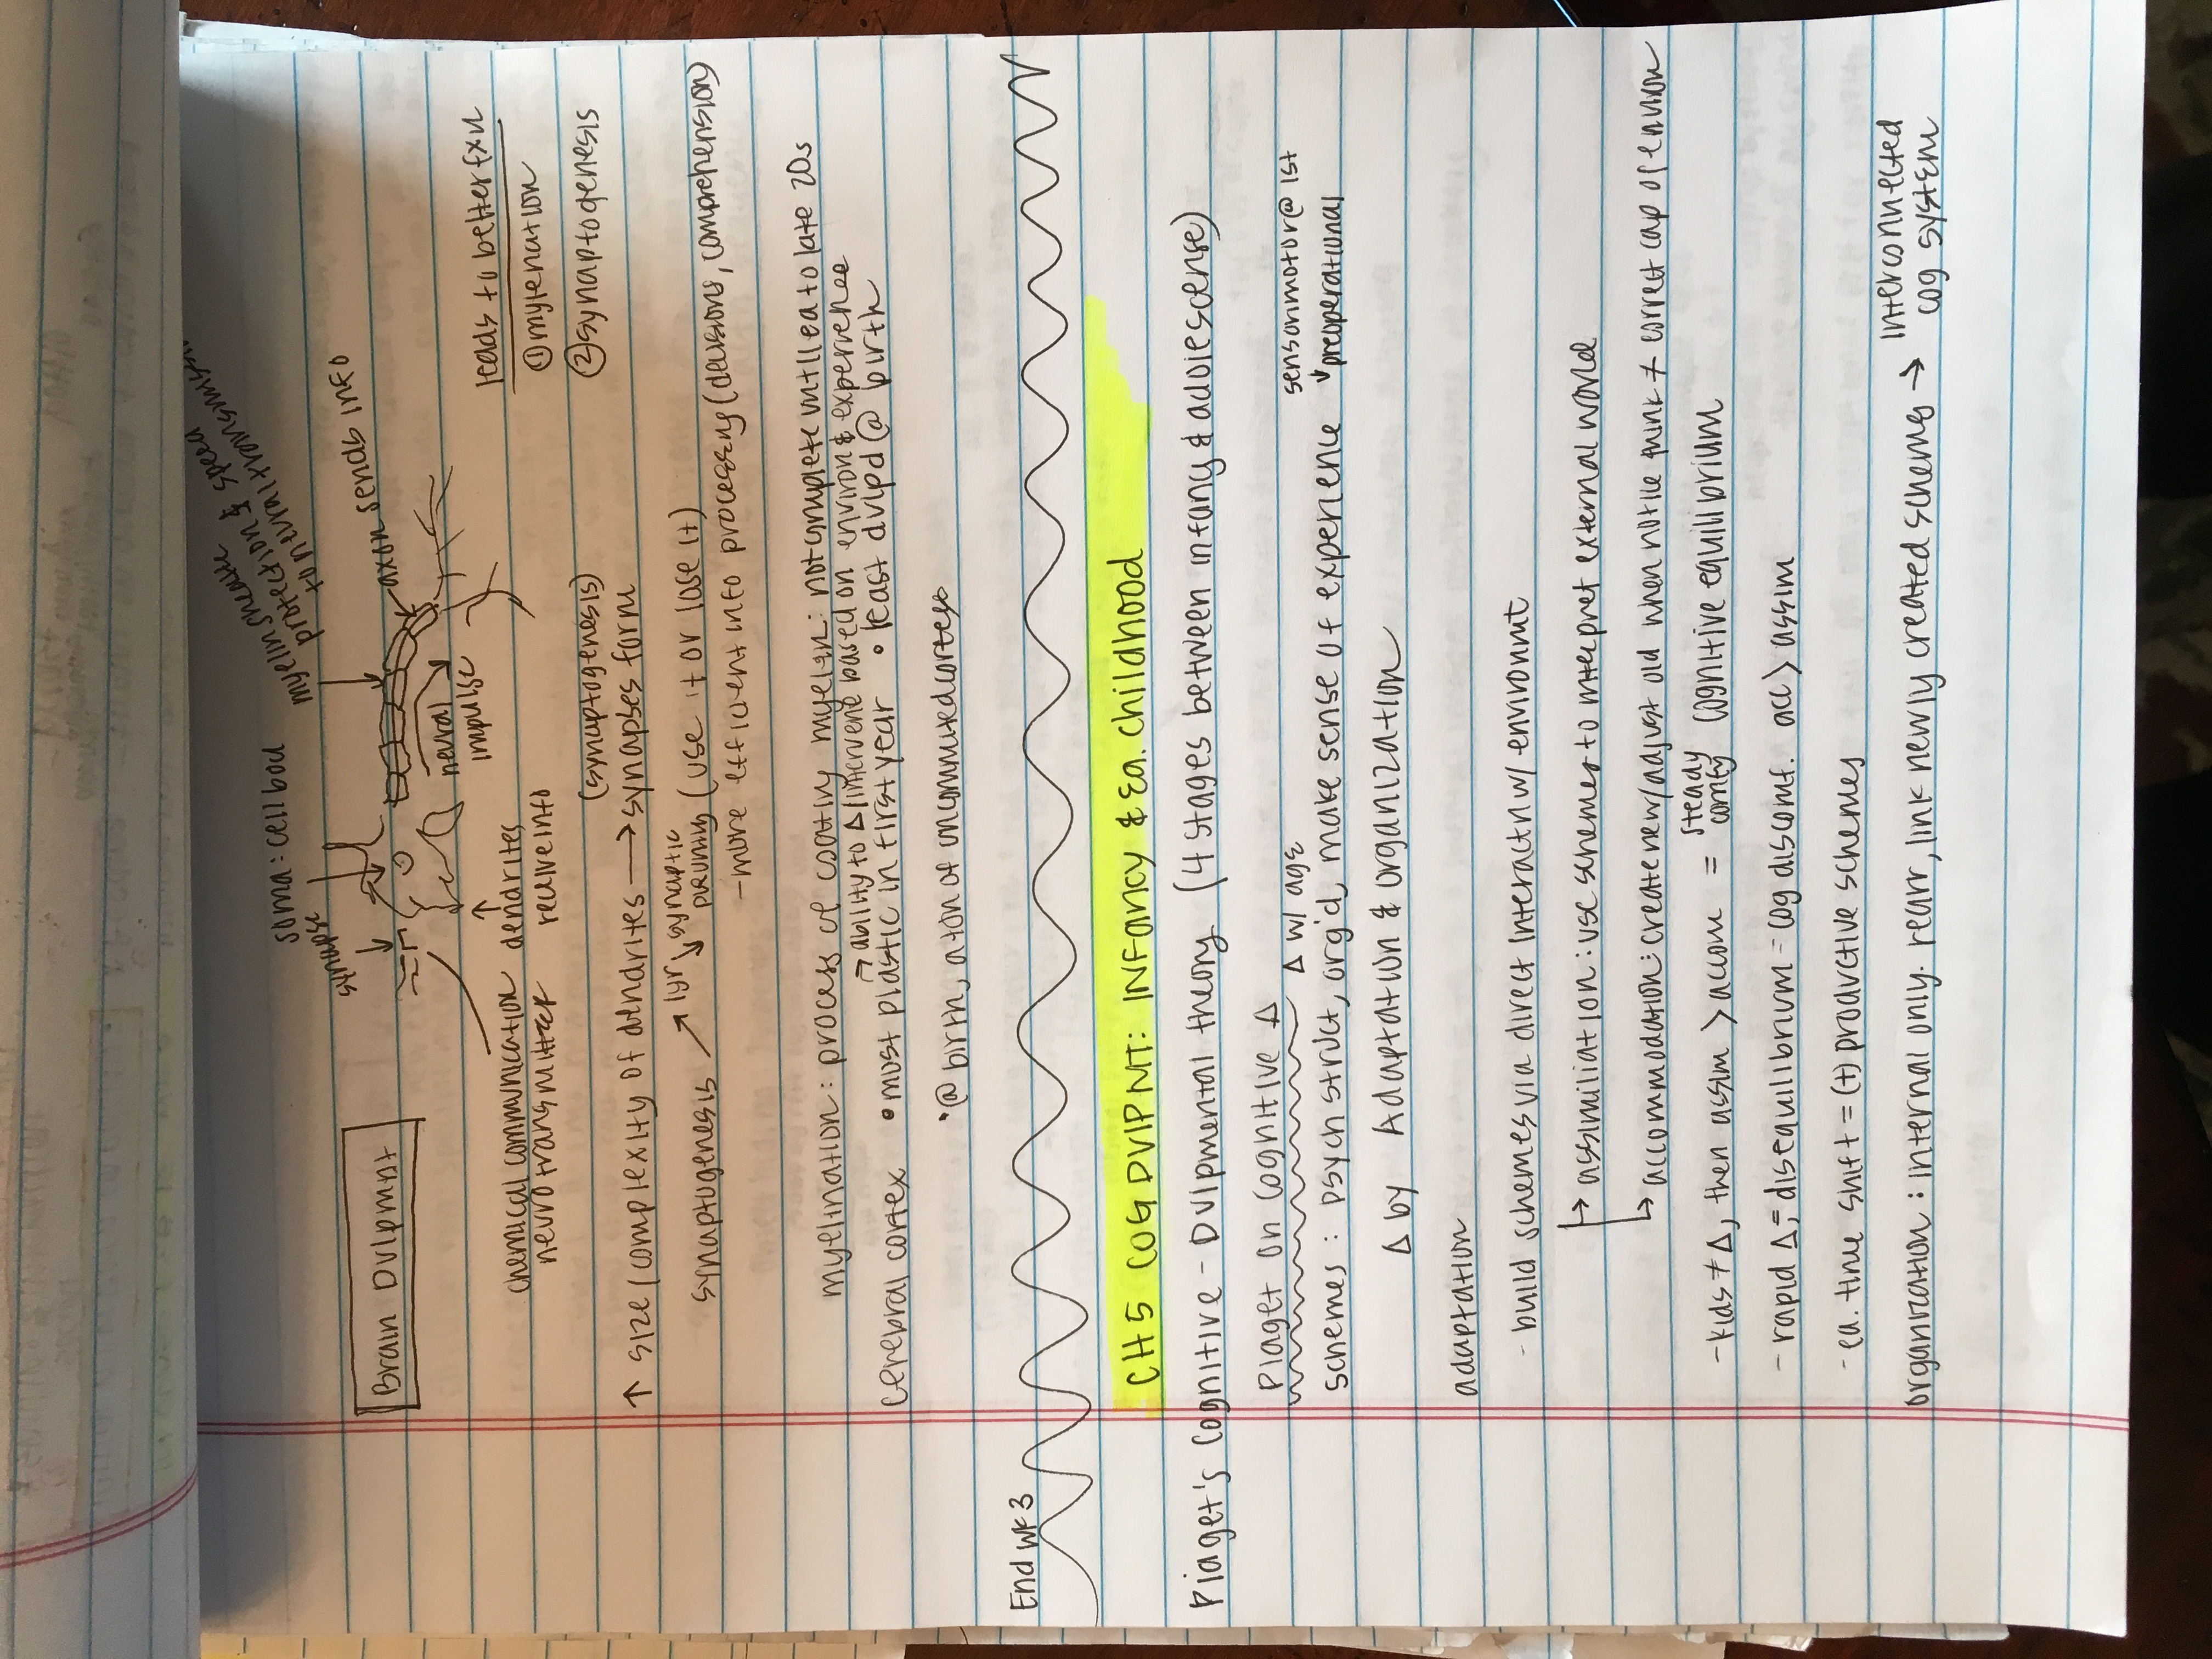 myelin sheath: speed
protection &
to neural transmission
soma: cell bod
synapse
axon sends info
Brain Dvlpmnt
neural
impulse
leads to better fxn
① mylenation
② synaptogenesis
chemical communication
neurotransmitter
dendrites
receive into
(synaptogenesis)
↑ size/complexity of dendrites → synapses form
synaptogenesis ↗ 1yr ↘ synaptic
pruning (use it or lose it)
- more efficient info processing (decisions, comprehension)
myelination: process of coating myelin: not complete until ea to late 20s
→ ability to Δ/intervene based on environ & experience
cerebral cortex • most plastic in first year • least dvlpd @ birth
• @ birth, a ton of uncommitted cortexes
End wk 3
CH 5 COG DVLPMT: INFancy & Ea. childhood
Piaget's Cognitive-Dvlpmental theory (4 stages between infancy & adolescense)
Piaget on Cognitive Δ
Δ w/ age
sensorimotor @ 1st
↓ preoperational
schemes: psych struct, org'd, make sense of experience
Δ by Adaptation & organization
adaptation
- build schemes via direct interactn w/ environmt
↳ assimiliation: use schemes to interpret external world
↳ accommodation: create new/adjust old when notice think ≠ correct cap of environ
- kids ≠ Δ, then assim > accom = steady comfy cognitive equilibrium
- rapid Δ; disequilibrium = cog discomf. acc > assim
- ea. time shift = (+) productive schemes
organization: internal only. rearr, link newly created schemes → interconnected
cog system